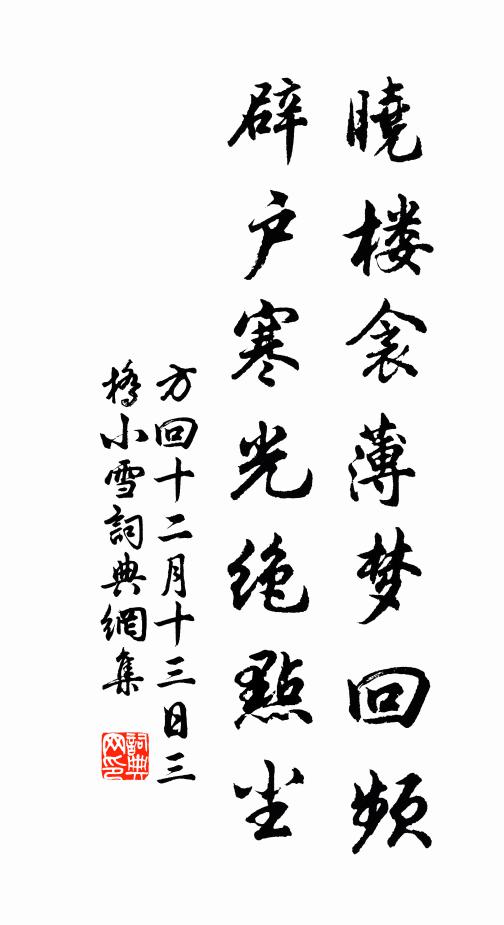 曉楼衾薄梦回频
辟户寒光绝點尘
方回十二月十三日三
橋小雪詞典網集
詞典
网印